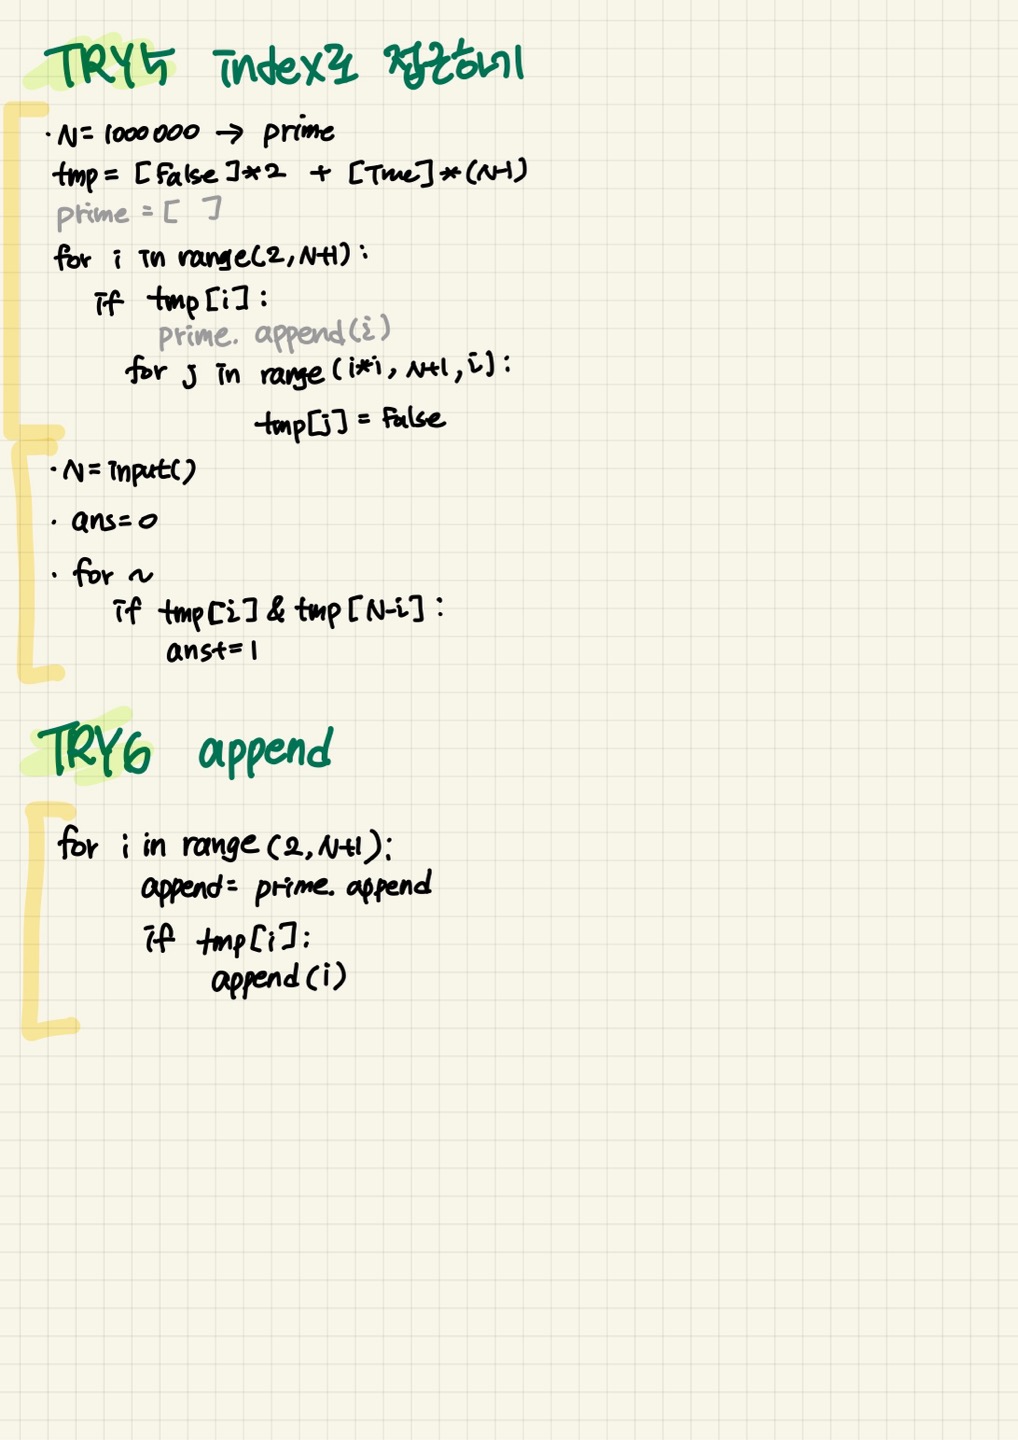 TRY5 index로 접근하기
· N = 1000000 → prime
tmp = [False]*2 + [True]*(N-1)
prime = [ ]
for i in range(2, N+1):
if tmp[i]:
prime. append(i)
for j in range(i*i, N+1, i]:
tmp[j] = False
· N = input()
· ans = 0
· for ~
if tmp[i] & tmp[N-i]:
ans+=1
TRY6 append
for i in range(2, N+1):
append = prime. append
if tmp[i]:
append(i)